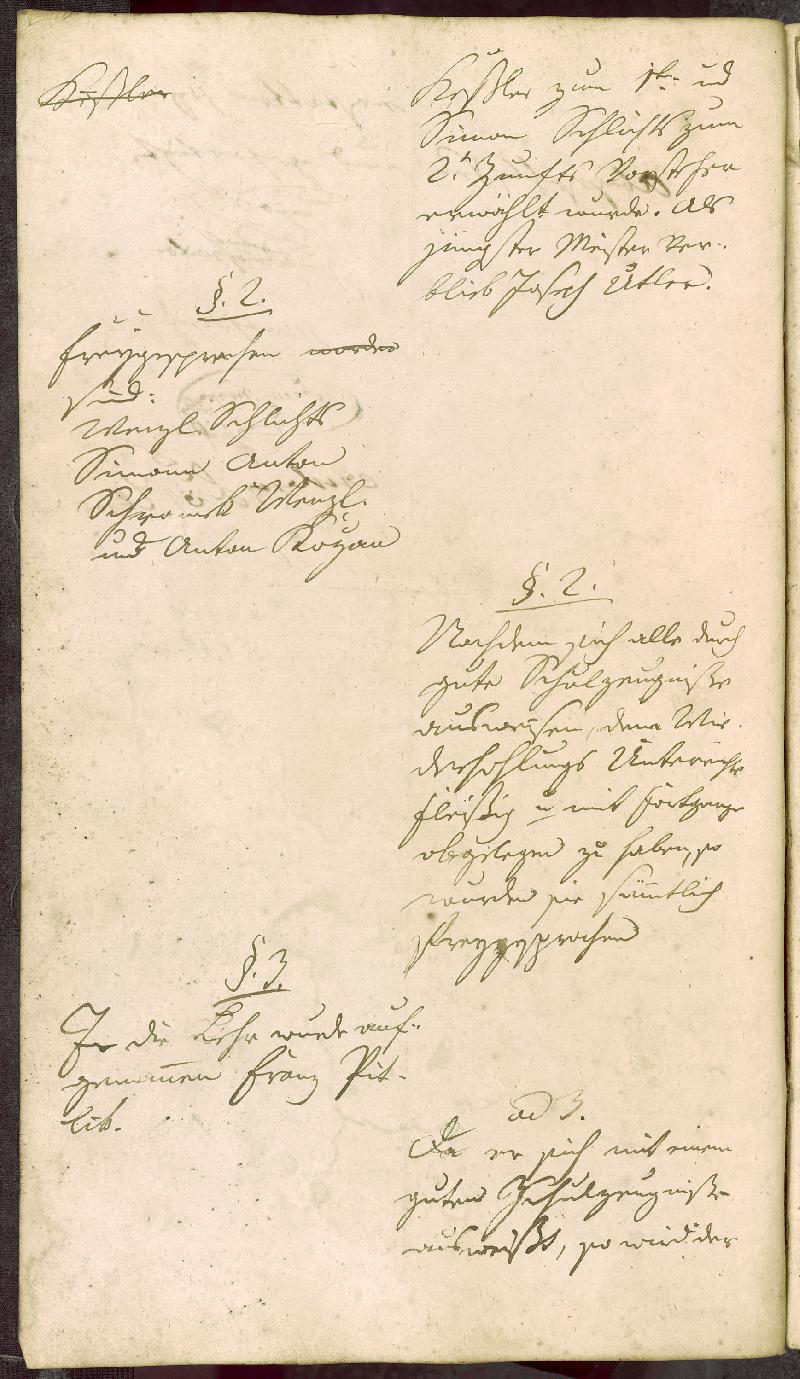 Keßler
§. 2.
Freygesprochen worden
sind:
Wenzl Schlichts
Simonn Anton
Schramek Wenzl.
und Anton Kozan
§. 3.
In die Lehr wurde auf-
genommen Franz Pit-
lik.
Keßler zum 1ten ud
Simon Schlichts zum
2t Zunfts Vorsteher
erwählt wurde. Als
jüngster Meister ver-
blieb Joseph Utler.
§. 2.
Nachdem sich alle durch
gute Schulzeugniße
ausweisen, dem Wie-
derhohlungs Unterricht
fleißig u mit Fortgange
obgelegen zu haben, so
wurden sie sämtlich
freygesprochen
ad 3.
Da er sich mit einem
guten Schulzeugniße
ausweißt, so wird der